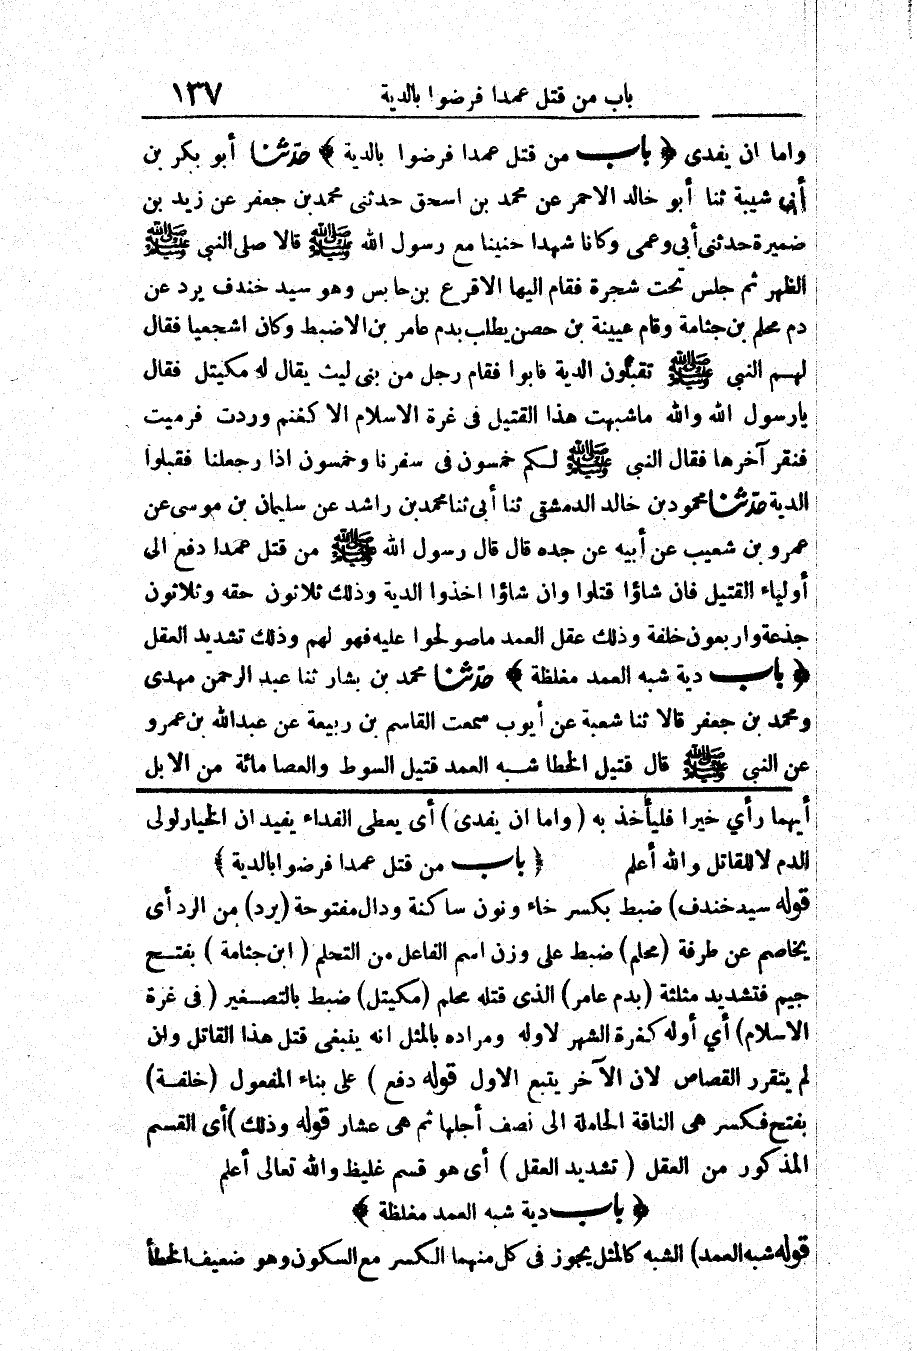 باب من قتل عمدا فرضوا بالدية ١٣٧
واما ان يفدى ﴿ باب من قتل عمدا فرضوا بالدية ﴾ حدثنا أبو بكر بن
أبي شيبة ثنا أبو خالد الاحمر عن محمد بن اسحق حدثنى محمد بن جعفر عن زيد بن
ضميرة حدثنى أبى وعمى وكانا شهدا حنينا مع رسول الله ﷺ قالا صلى النبى ﷺ
الظهر ثم جلس تحت شجرة فقام اليها الاقرع بن حابس وهو سيد خندف يرد عن
دم محلم بن جثامة وقام عيينة بن حصن يطلب بدم عامر بن الاضبط وكان اشجعيا فقال
لهم النبي ﷺ تقبلون الدية فابوا فقام رجل من بنى ليث يقال له مكيتل فقال
يارسول الله والله ماشبهت هذا القتيل فى غرة الاسلام الا كغنم وردت فرميت
فنقر آخرها فقال النبى ﷺ لكم خمسون فى سفرنا وخمسون اذا رجعلنا فقبلوا
الدية حدثنا محمود بن خالد الدمشقى ثنا أبى ثنا محمد بن راشد عن سليمان بن موسى عن
عمرو بن شعيب عن أبيه عن جده قال قال رسول الله ﷺ من قتل عمدا دفع الى
أولياء القتيل فان شاؤا قتلوا وان شاؤا اخذوا الدية وذلك ثلاثون حقه وثلاثون
جذعة واربعون خلفة وذلك عقل العمد ماصولحوا عليه فهو لهم وذلك تشديد العقل
﴿ باب دية شبه العمد مغلظة ﴾ حدثنا محمد بن بشار ثنا عبد الرحمن مهدى
ومحمد بن جعفر قالا ثنا شعبة عن أيوب سمعت القاسم بن ربيعة عن عبدالله بن عمرو
عن النبى ﷺ قال قتيل الخطا شبه العمد قتيل السوط والعصا مائة من الابل
أيهما رأي خيرا فليأخذ به ( واما ان يفدى ) أى يعطى الفداء يفيد ان الخيار لولى
الدم لا للقاتل والله أعلم ﴿ باب من قتل عمدا فرضوا بالدية ﴾
قوله سيد خندف) ضبط بكسر خاء ونون ساكنة ودال مفتوحة (يرد) من الرد أى
يخاصم عن طرفة (محلم) ضبط على وزن اسم الفاعل من التحلم ( ابن جثامة ) بفتح
جيم فتشديد مثلثة (بدم عامر) الذى قتله محلم (مكيتل) ضبط بالتصغير ( فى غرة
الاسلام) أي أوله كغرة الشهر لاوله ومراده بالمثل انه ينبغى قتل هذا القاتل وان
لم يتقرر القصاص لان الآخر يتبع الاول قوله دفع ) على بناء المفعول (خلفة)
بفتح فكسر هى الناقة الحاملة الى نصف أجلها ثم هى عشار قوله وذلك )أى القسم
المذكور من العقل ( تشديد العقل ) أى هو قسم غليظ والله تعالى أعلم
﴿ باب دية شبه العمد مغلظة ﴾
قوله شبه العمد) الشبه كالمثل يجوز فى كل منهما الكسر مع السكون وهو ضعيف الخطأ